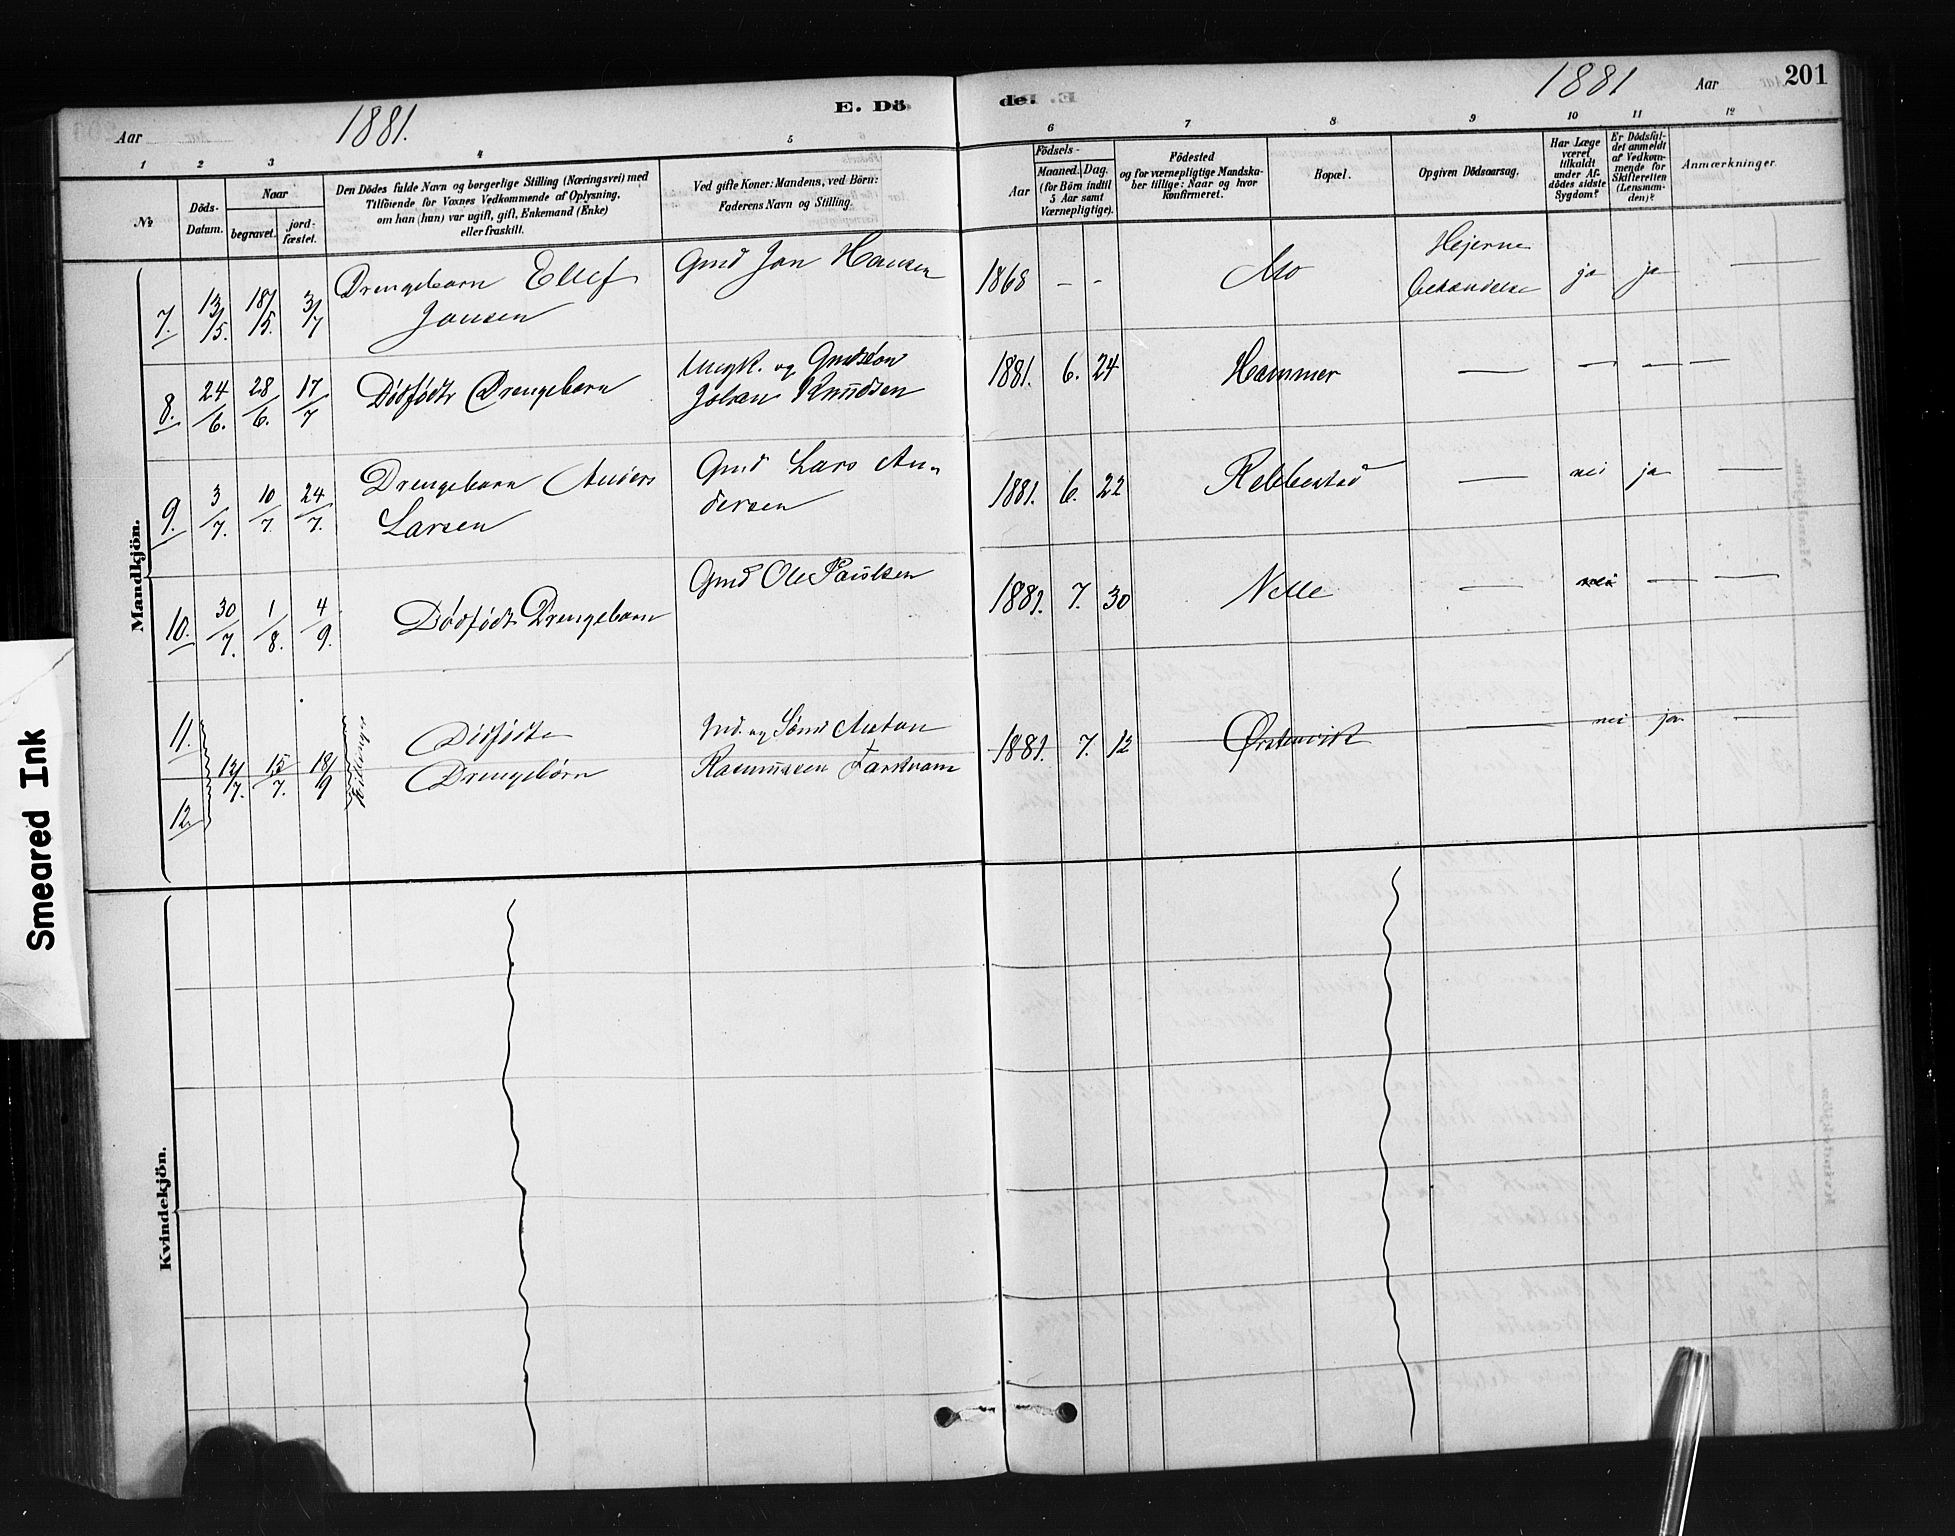 Smeared Ink
Aar 1881. E. Dö de. 1881 Aar 201
1 2 3 4 5 6 7 8 9 10 11 12
№
Döds-Datum.
Naar
begravet.
jord-fæstet.
Den Dödes fulde Navn og borgerlige Stilling (Næringsvei) med
Tilföiende for Voxnes Vedkommende af Oplysning,
om han (hun) var ugift, gift, Enkemand (Enke)
eller fraskilt.
Ved gifte Koner: Mandens, ved Börn:
Faderens Navn og Stilling.
Aar
Födsels-
Maaned. Dag.
(for Börn indtil
5 Aar samt
Værnepligtige).
Födested
og for værnepligtige Mandska-
ber tillige: Naar og hvor
konfirmeret.
Bopæl.
Opgiven Dödsaarsag.
Har Læge
været
tilkaldt
under Af-
dödes sidste
Sygdom?
Er Dödsfal-
det anmeldt
af Vedkom-
mende for
Skifteretten
(Lensman-
den)?
Anmærkninger.
Mandkjön.
7. 13/5. 18/5. 3/7 Drengebarn Ellef Gmd Jon Hansen 1868 - - Mo Hjerne ja ja —
Jonsen behændelse
8. 24/6. 28/6. 17/7 Dødfødt Drengebarn Ungk. og Gmdsøn 1881. 6. 24 Hammer — — — —
Johan Knudsen
9. 3/7. 10/7 24/7. Drengebarn Anders Gmd Lars An- 1881. 6. 22 Rebbestad — nei ja —
Larsen dersen
10. 30/7. 1/8. 4/9. Dødfødt Drengebarn Gmd Ole Paulsen 1881. 7. 30 Nelle — nei — —
11. Dødfødte Gmd. og Anton 1881. 7. 12 — nei ja —
12/7. 15/7. 18/9 Drengebørn Rasmussen
12.
Kvindekjön.